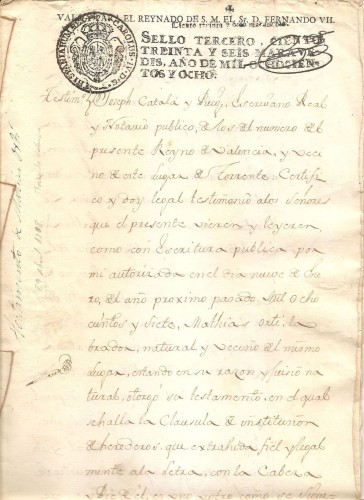 VALGA PARA EL REYNADO DE S. M. EL Sr. D. FERNANDO VII.
Ciento treinta y
SELLO TERCERO, CIENTO
TREINTA Y SEIS MARAVE-
DIS, AÑO DE MIL OCHOCIEN-
TOS Y OCHO.
Testimo
Joseph Catalá y Escrivano Real
y Notario publico, de los del numero del
presente Reyno de Valencia, y veci
no de este Lugar de Torrente: Certifi
co y doy legal testimonio a los Señores
que el presente vieren y leyeren,
como con Escritura publica por
mi autorizada en el dia nueve de Ene
ro, del año proximo pasado Mil ocho
cientos y siete, Mathias Orti, la
brador, natural y vecino del mismo
Lugar, estando en su razon y juicio na
tural, otorgó su testamento, en el qual
se halla la Clausula de institusion
de herederos, que extrahida fiel y legal
mente a la letra, con la Cabeza
Testamento de Mathias Orti